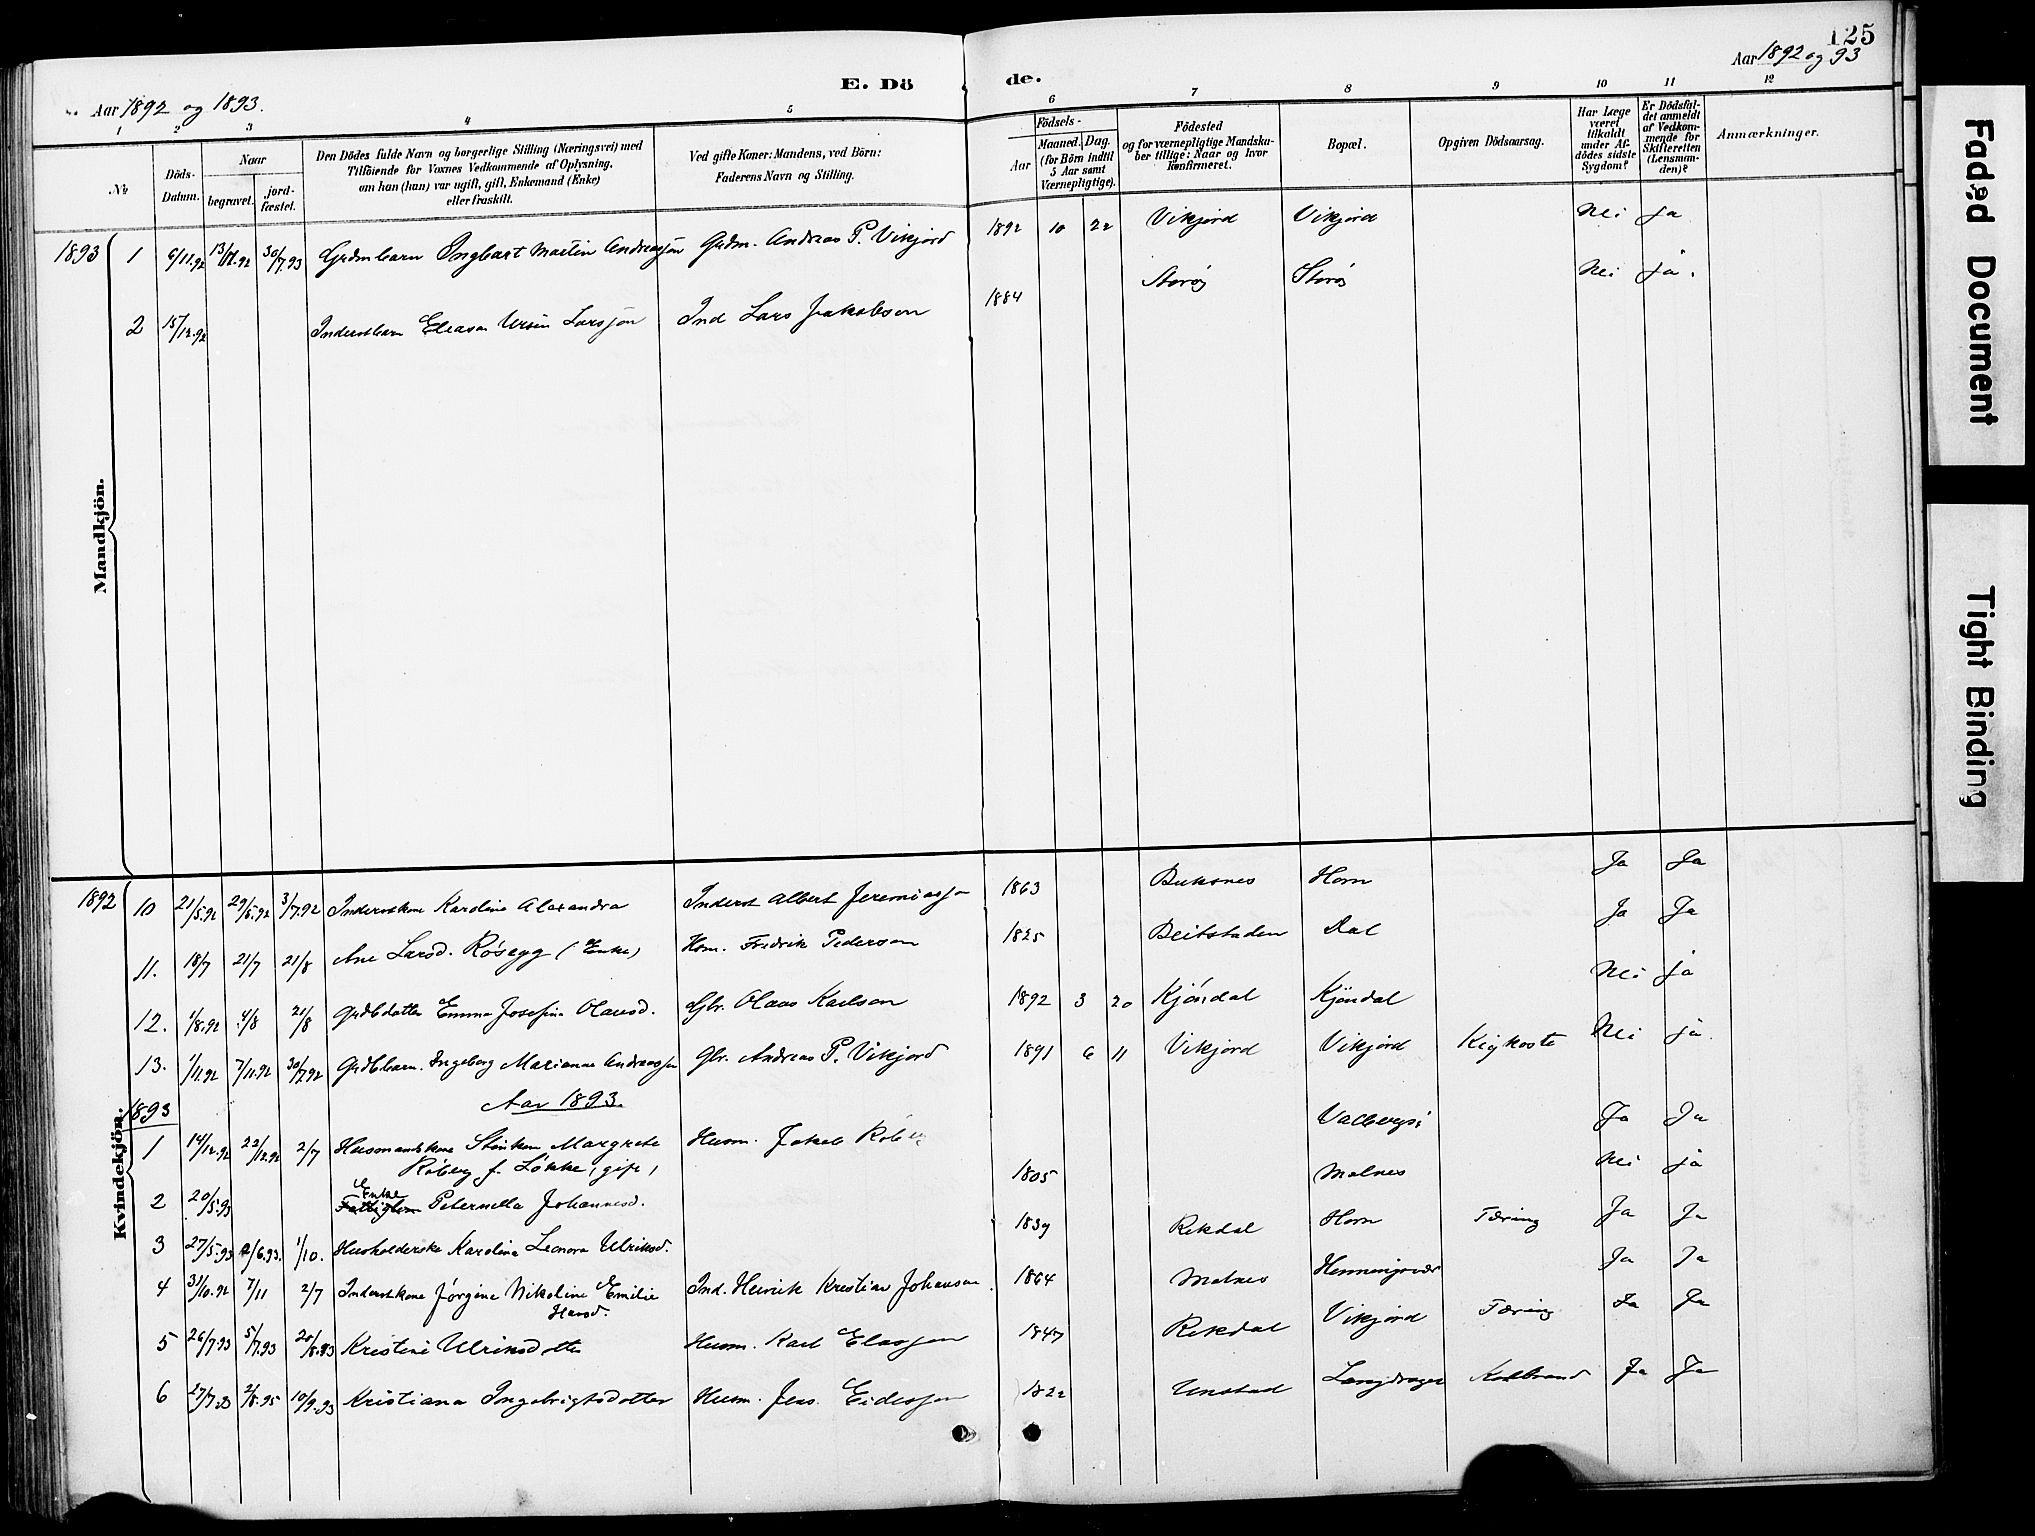 125
Aar 1892 og 1893.
E. Dö
de.
Aar 1892 og 93
1 2 3 4 5 6 7 8 9 10 11 12
No
Döds-Datum.
Naar
begravet.
jord-fæstet.
Den Dödes fulde Navn og borgerlige Stilling (Næringsvei) med
Tilföiende for Voxnes Vedkommende af Oplysning,
om han (hun) var ugift, gift, Enkemand (Enke)
eller fraskilt.
Ved gifte Koner: Mandens, ved Börn:
Faderens Navn og Stilling.
Födsels-
Aar
Maaned. Dag.
(for Börn indtil
5 Aar samt
Værnepligtige).
Födested
og for værnepligtige Mandska-
ber tillige: Naar og hvor
konfirmeret.
Bopæl.
Opgiven Dödsaarsag.
Har Læge
været
tilkaldt
under Af-
dödes sidste
Sygdom?
Er Dödsfal-
det anmeldt
af Vedkom-
mende for
Skifteretten
(Lensman-
den)?
Anmærkninger.
Mandkjön.
1893 1 6/11.92 13/11.92 30/7.93 Grdmbarn Ingbart Martin Andreassøn Grdm. Andreas P. Vikjord 1892 10 22 Vikjord Vikjord Nei Ja
2 15/12.92 Inderstbarn Eleasar Ursin Larssøn Ind Lars Jakobson 1884 Storøy Storøy Nei ja.
Kvindekjön.
1892 10 21/5.92 29/5.92 3/7.92 Inderstkone Karoline Alexandra Inderst Albert Jeremiassøn 1863 Buksnes Horn Ja Ja
11. 18/7 21/7 21/8 Ane Larsd. Røsegg (Enke) Hsm. Fredrik Pedersen 1825 Beitstaden Dal Ja Ja
12. 1/8.92 4/8 21/8 Grdbdatter Emma Josefine Olausd. Gbr. Olaus Karlsen 1892 3 20 Kjøndal Kjøndal Nei ja
13. 1/11.92 7/11.92 30/7.92 Grdbbarn. Ingeborg Marianne Andreassen Gbr. Andreas P. Vikjord 1891 6 11 Vikjord Vikjord Kighoste Nei ja.
1893
Aar 1893.
1 14/12.92 22/12.92 2/7 Husmandskone Stinken Margrete Husm. Jakob Røberg Valbergs: Ja Ja
Røberg f. Løkke, gift,
2 20/5.93 Enke
Peternella Johannesd. 1805 Malnes Nei ja
3 27/5.93 2/6.93. 1/10. Husholderske Karoline Leonora Ulriksd. 1839 Rekdal Horn Tæring Ja Ja
4 31/10.92 7/11 2/7 Inderstkone Jørgine Nikoline Emilie Ind. Heinrik Kristian Johansen. 1864 Malnes Henningsvær Ja Ja
Hansd.
5 26/7.93 5/7.93 20/8.93 Kristine Ulriksdotter Husm. Karl Eliassøn 1847 Rekdal Vikjord Tæring Ja Ja
6 27/7.93 2/8.95 10/9.93 Kristiana Ingebrigtsdotter Husm. Jens Eidessøn 1822 Unstad Koldbrand Ja Ja
Faded Document
Tight Binding